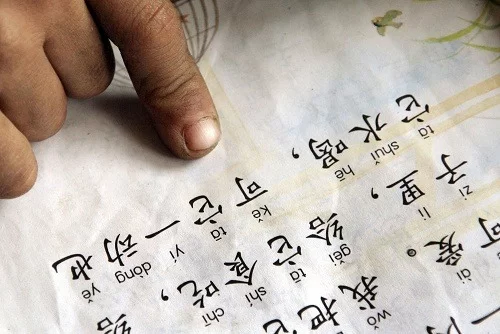 ài wǒ
可爱。我把它
zi lǐ gěi tā shí chī
子里，给它食吃，给
tā shuǐ hē kě tā yī dòng yě
它水喝，可它一动也